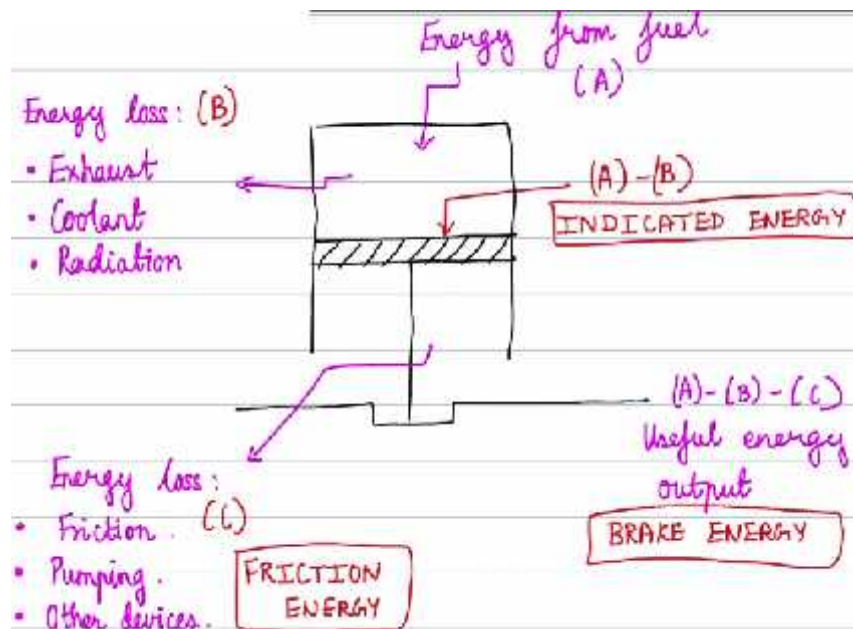 Energy from fuel
(A)
Energy loss: (B)
• Exhaust
• Coolant
• Radiation
(A)-(B)
INDICATED ENERGY
(A)-(B)-(C)
Useful energy
output
BRAKE ENERGY
Energy loss:
• Friction. (C)
• Pumping.
• Other devices.
FRICTION
ENERGY